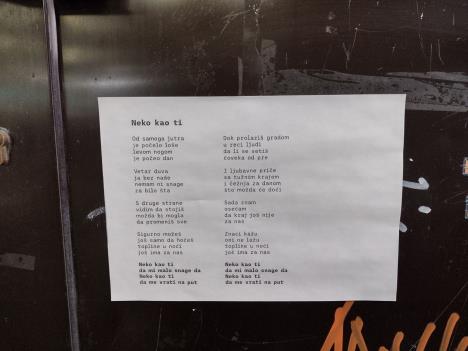 Neko kao ti
Od samoga jutra
je počelo loše
levom nogom
je počeo dan
Vetar duva
ja bez naše
nemam ni snage
za bilo šta
S druge strane
vidim da stojiš
možda bi mogla
da promeniš sve
Sigurno možeš
još samo da hoćeš
topline u noći
još ima za nas
Neko kao ti
da mi malo snage da
Neko kao ti
da me vrati na put
Dok prolaziš gradom
u reci ljudi
da li se setiš
čoveka od pre
I ljubavne priče
sa tužnim krajem
i čežnja za danom
što možda će doći
Sada znam
osećam
da kraj još nije
za nas
Znaci kažu
oni ne lažu
topline u noći
još ima za nas
Neko kao ti
da mi malo snage da
Neko kao ti
da me vrati na put